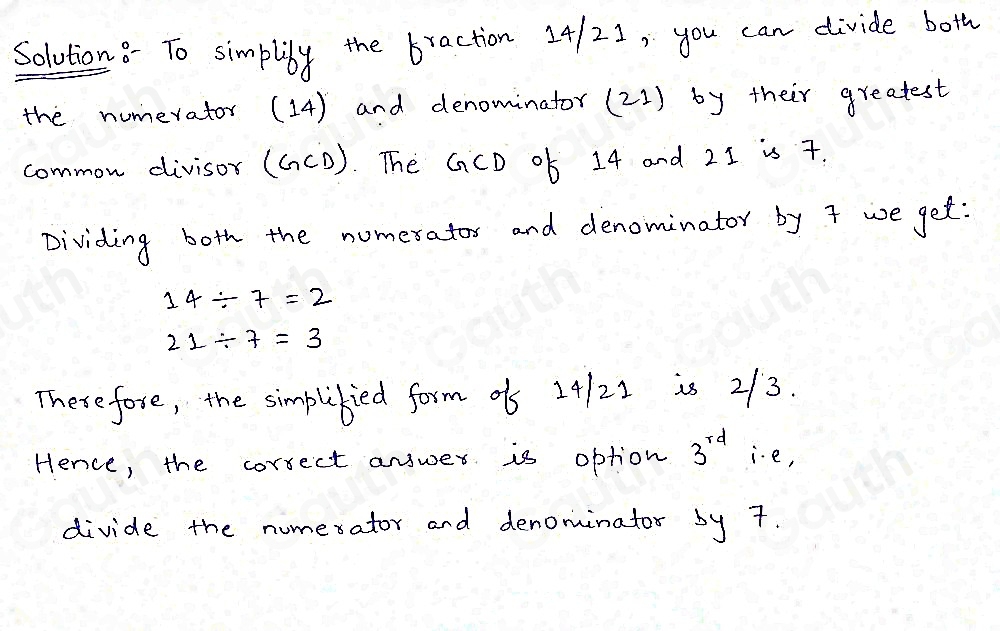 Solution:- To simplify the fraction 14/21, you can divide both
the numerator (14) and denominator (21) by their greatest
common divisor (GCD). The GCD of 14 and 21 is 7.
Dividing both the numerator and denominator by 7 we get:
14 ÷ 7 = 2
21 ÷ 7 = 3
Therefore, the simplified form of 14/21 is 2/3.
Hence, the correct answer is option 3rd i.e,
divide the numerator and denominator by 7.